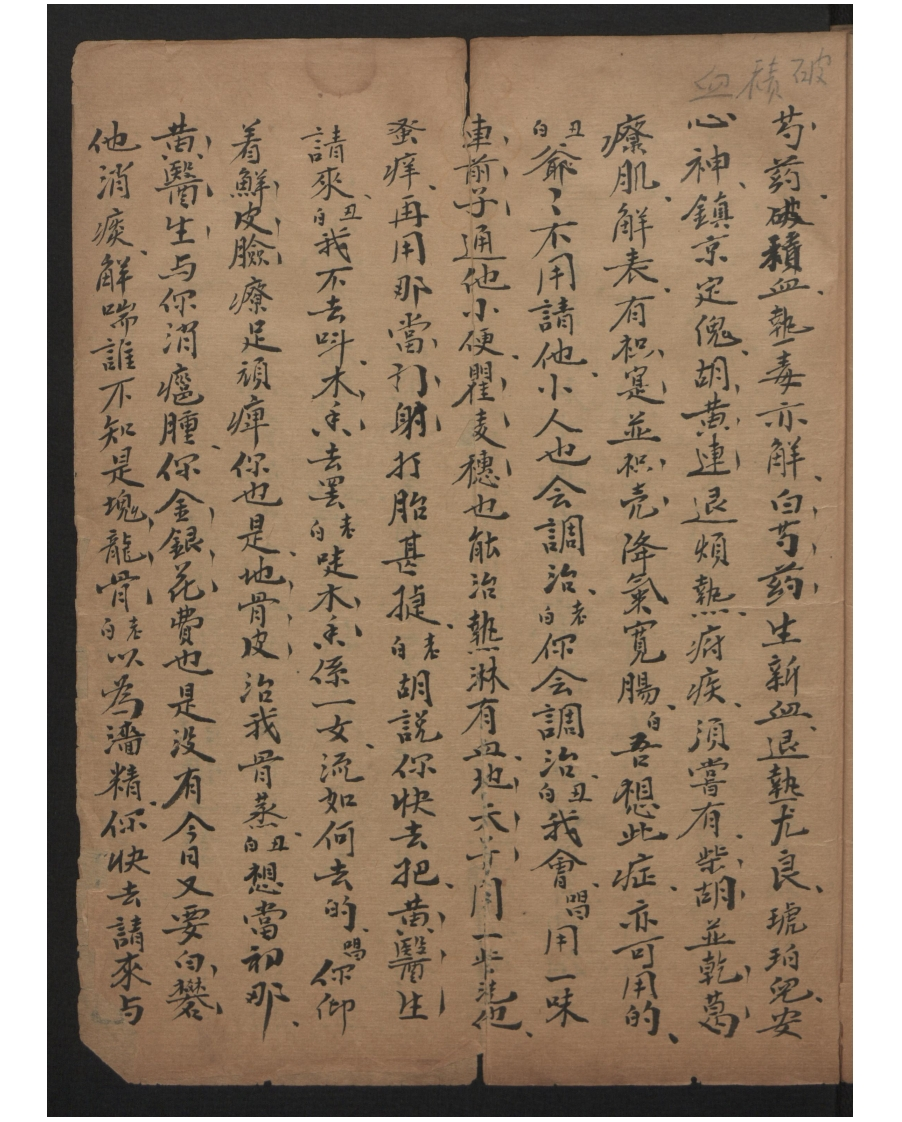 破積血
芍药破積血熱毒亦解白芍药生新血退熱尤良琥珀兒安
心神鎮京定傀胡黄連退煩熱疳疾須嘗有柴胡並乾葛
療肌解表有枳寔並枳壳降氣寬腸白吾想此症亦可用的
丑白爺〻不用請他小人也会調治老白你会調治丑白我會唱用一味
車前子通他小便瞿麦穗也能治熱淋有血地 用一 他
蚤痒再用那當 射打胎甚捷老白胡說你快去把黄醫生
請來丑白我不去呌木香去罢老白唗木香係一女流如何去的唱你仰
着鮮皮臉療足頑痺你也是地骨皮治我骨蒸丑白想當初那
黄醫生与你消癰腫你金銀花費也是没有今日又要白礬
他消痰解喘誰不知是塊龍骨老白以為濇精你快去請來与